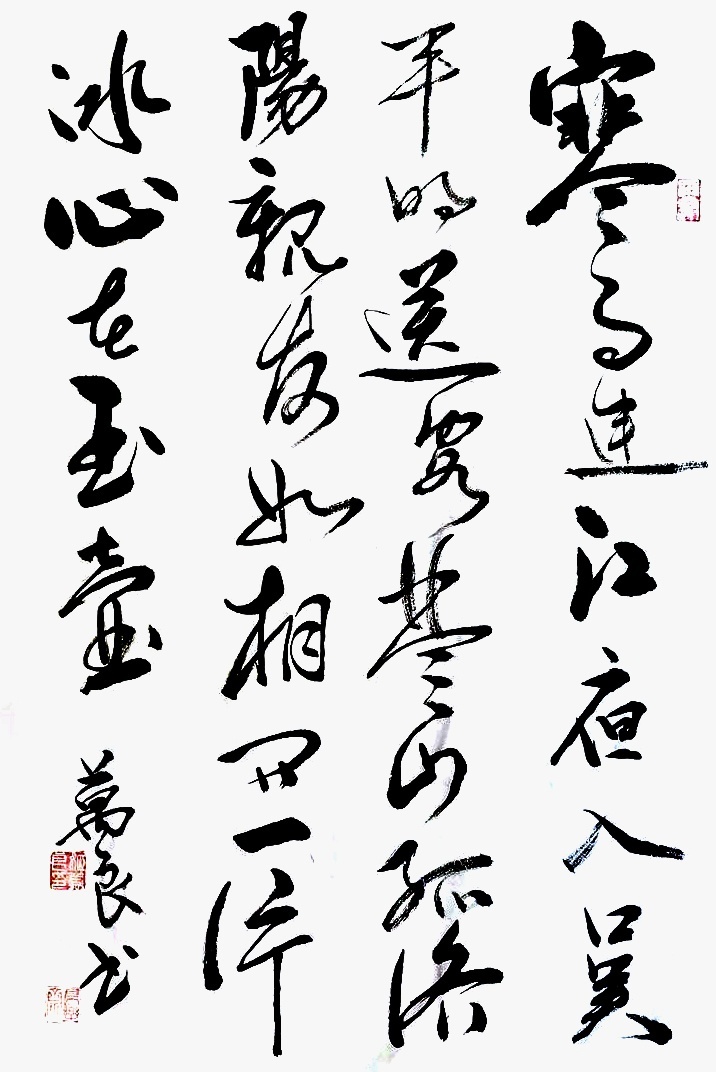 寒雨連江夜入吳
平明送客楚山孤洛
陽親友如相問一片
冰心在玉壺
萬良书